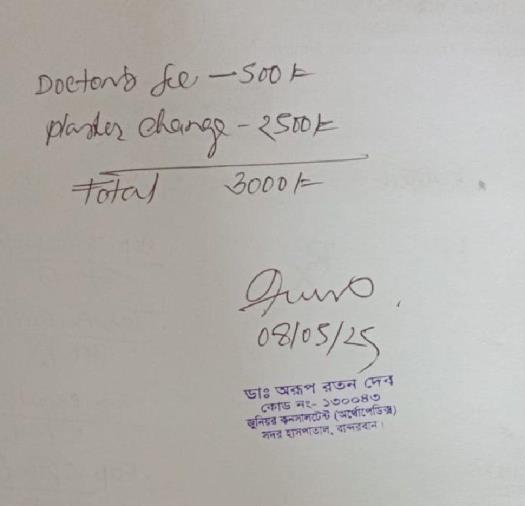 Doctor's fee - 500/=
plaster change - 2500/=
Total 3000/=
08/05/25
ডাঃ অরূপ রতন দেব
কোড নং- ১৩০০৪৩
জুনিয়র কনসালটেন্ট (অর্থোপেডিক্স)
সদর হাসপাতাল, বান্দরবান।